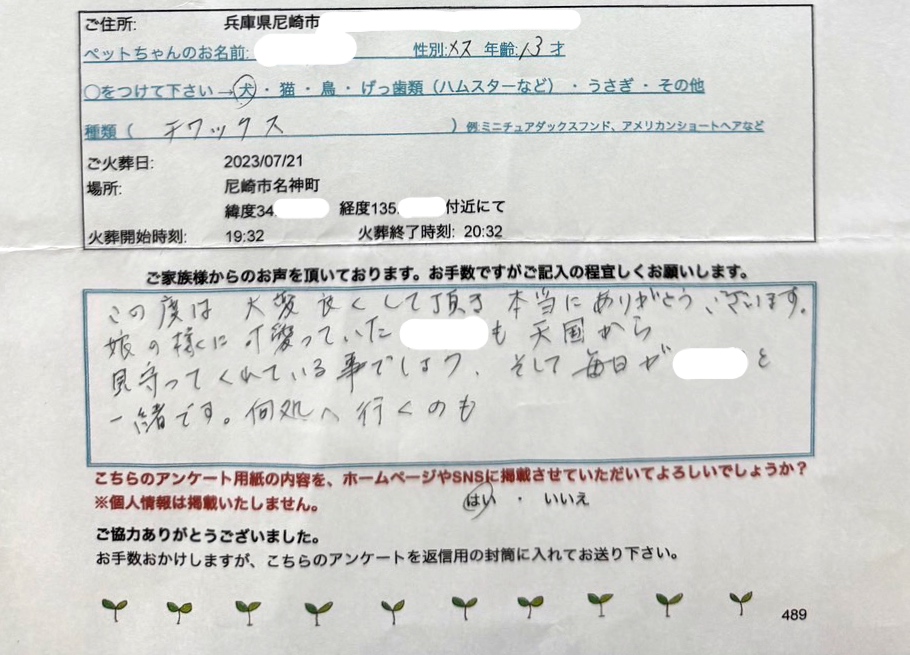 ご住所: 兵庫県尼崎市
ペットちゃんのお名前: 性別:メス 年齢:13才
○をつけて下さい→犬・猫・鳥・げっ歯類（ハムスターなど）・うさぎ・その他
種類（ チワックス ）例:ミニチュアダックスフンド、アメリカンショートヘアなど
ご火葬日: 2023/07/21
場所: 尼崎市名神町
緯度34. 経度135. 付近にて
火葬開始時刻: 19:32 火葬終了時刻: 20:32
ご家族様からのお声を頂いております。お手数ですがご記入の程宜しくお願いします。
この度は 大変良くして頂き 本当にありがとうございます。
娘の様に可愛っていた も 天国から
見守ってくれている事でしょう、そして毎日が と
一緒です。何処へ行くのも
こちらのアンケート用紙の内容を、ホームページやSNSに掲載させていただいてよろしいでしょうか？
※個人情報は掲載いたしません。 はい ・ いいえ
ご協力ありがとうございました。
お手数おかけしますが、こちらのアンケートを返信用の封筒に入れてお送り下さい。
489